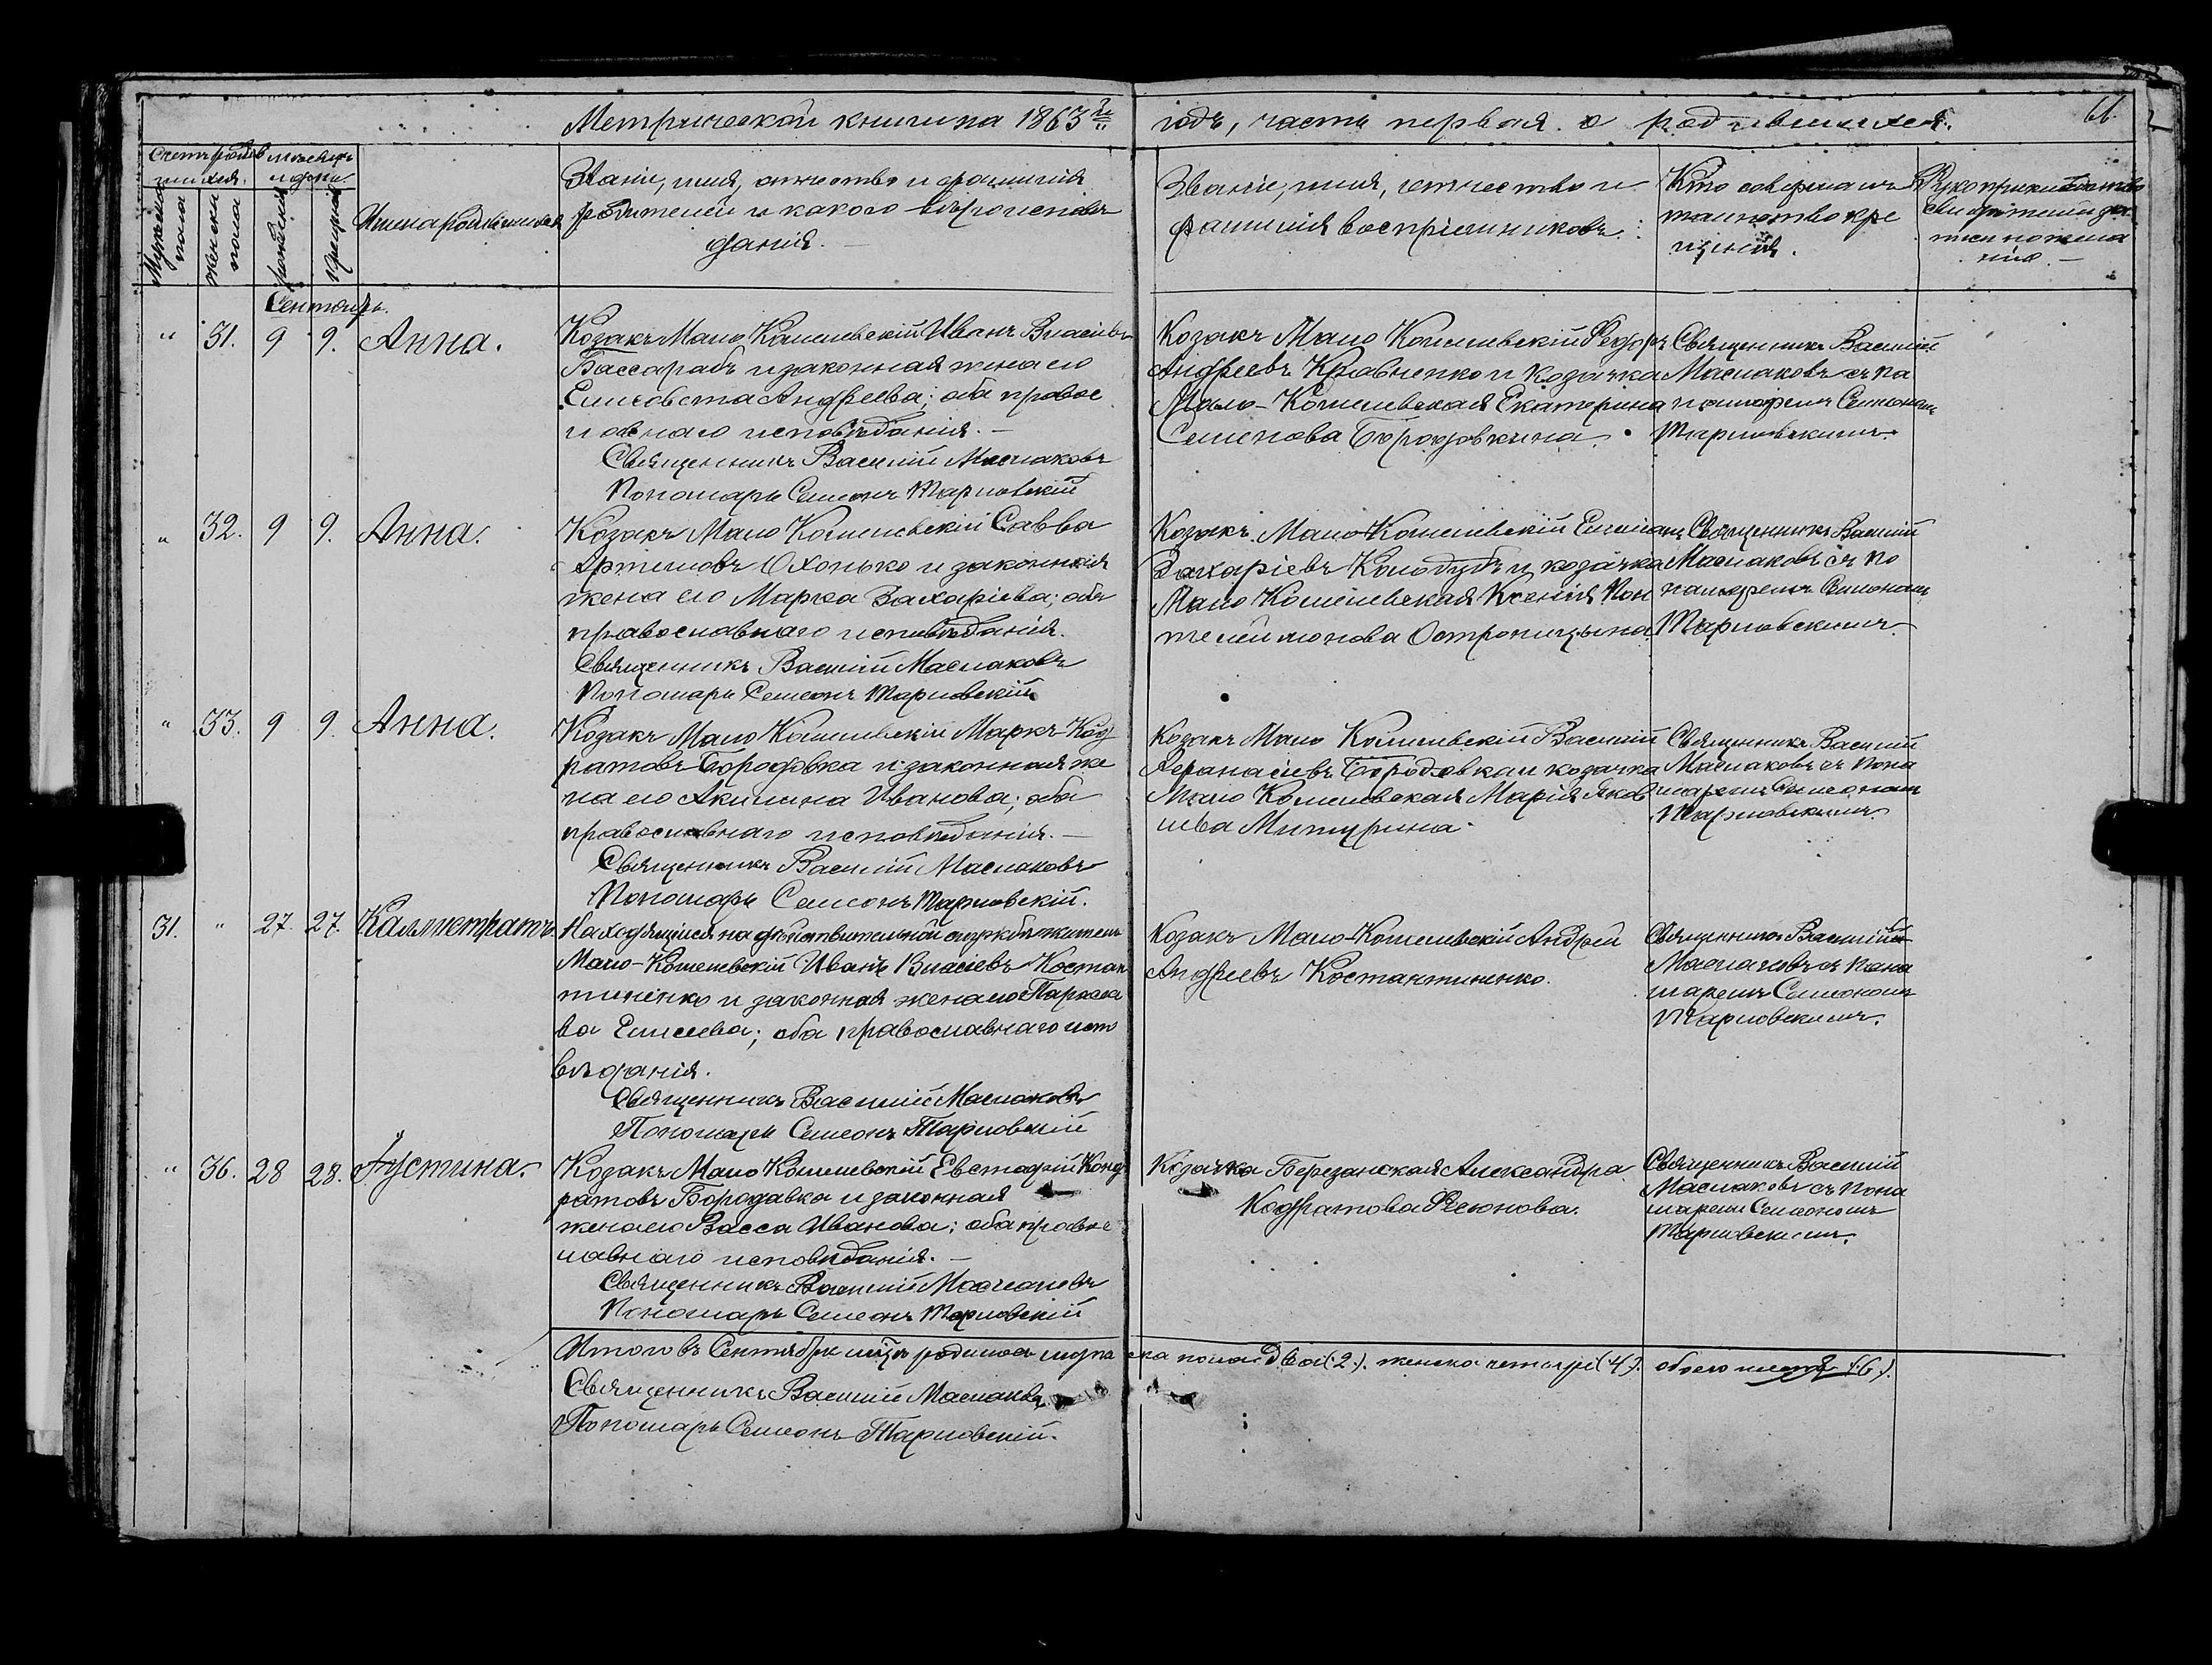 Метрической книги на 1863й
годъ, часть первая о родившихся.
61.
Счетъ родив
шихся.
Мужеска
пола
женска
пола
месяцъ
и день
рожденія
крещенія
Имена родившихся
Званіе, имя, отчество и фамилія
родителей и какого вероисповѣ
данія.
Званіе, имя, отчество и
фамилія воспріемниковъ.
Кто совершалъ
таинство кре
щенія.
Рукоприкладство
свидетелей
Сентябрь.
" 31. 9 9. Анна.
Козакъ Мало Кошелевскій Иванъ Власіевъ
Бассарабъ и законная жена его
Елисовета Андреева; оба правос
лавнаго исповѣданія. —
Священникъ Василій Маслаковъ
Пономарь Семеонъ Тарновскій
Козакъ Мало Кошелевскій Федоръ
Андреевъ Кравченко и козачка
Мало-Кошелевская Екатерина
Семенова Бородовкина.
Священникъ Василій
Маслаковъ съ по
номаремъ Семеономъ
Тарновскимъ.
" 32. 9 9. Анна.
Козакъ Мало Кошелевскій Савва
Артемовъ Охонько и законная
жена его Марѳа Захаріева; оба
православнаго исповѣданія.
Священникъ Василій Маслаковъ
Пономарь Семеонъ Тарновскій
Козакъ Мало-Кошелевскій
Захаріевъ Колодубъ и козачка
Мало Кошелевская Ксенія Пон
телеймонова Остроницына
Священникъ Василій
Маслаковъ съ по
намаремъ Семеономъ
Тарновскимъ.
" 33. 9 9. Анна.
Козакъ Мало Кошелевскій Маркъ Код
ратовъ Бородовка и законная же
на его Акилина Иванова; оба
православнаго исповѣданія. —
Священникъ Василій Маслаковъ
Пономарь Семеонъ Тарновскій.
Козакъ Мало Кошелевскій Василій
Афанасіевъ Бородовка и козачка
Мало Кошелевская Марія Яков
лева Митурина
Священникъ Василій
Маслаковъ съ пона
маремъ Семеономъ
Тарновскимъ.
31. " 27. 27. Каллистратъ.
Находящійся на дѣйствительной службѣ житель
Мало-Кошелевскій Иванъ Власіевъ Костан
тиненко и законная жена его Параске
ва Елисеева; оба православнаго испо
вѣданія.
Священникъ Василій Маслаковъ
Пономарь Семеонъ Тарновскій
Козакъ Мало-Кошелевскій Андрей
Андреевъ Костантиненко.
Священникъ Василій
Маслаковъ съ пона
маремъ Семеономъ
Тарновскимъ.
" 36. 28 28. Іустина.
Козакъ Мало Кошелевскій Евстафій Конд
ратовъ Бородавка и законная
жена его Васса Иванова; оба правос
лавнаго исповѣданія. —
Священникъ Василій Маслаковъ
Пономарь Семеонъ Тарновскій
Козачка Березанская Александра
Кодратова Феонова.
Священникъ Василій
Маслаковъ съ пона
маремъ Семеономъ
Тарновскимъ.
Итого въ Сентябрѣ мѣцѣ родилось мужеска пола два (2). женска четыре (4). обоего шесть (6).
Священникъ Василій Маслаковъ
Пономарь Семеонъ Тарновскій.